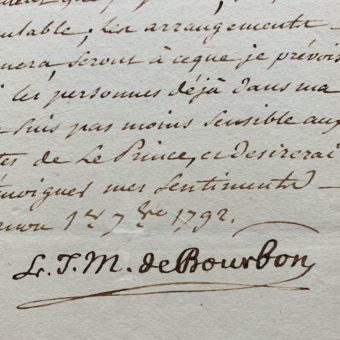 que
ulable; les arrangements
nera seront à ceque je prévois
les personnes déjà dans ma
suis pas moins sensible aux
tes de Le Prince, et desirerai
émoigner mes sentiments
1er 7bre 1792.
L. J. M. de Bourbon